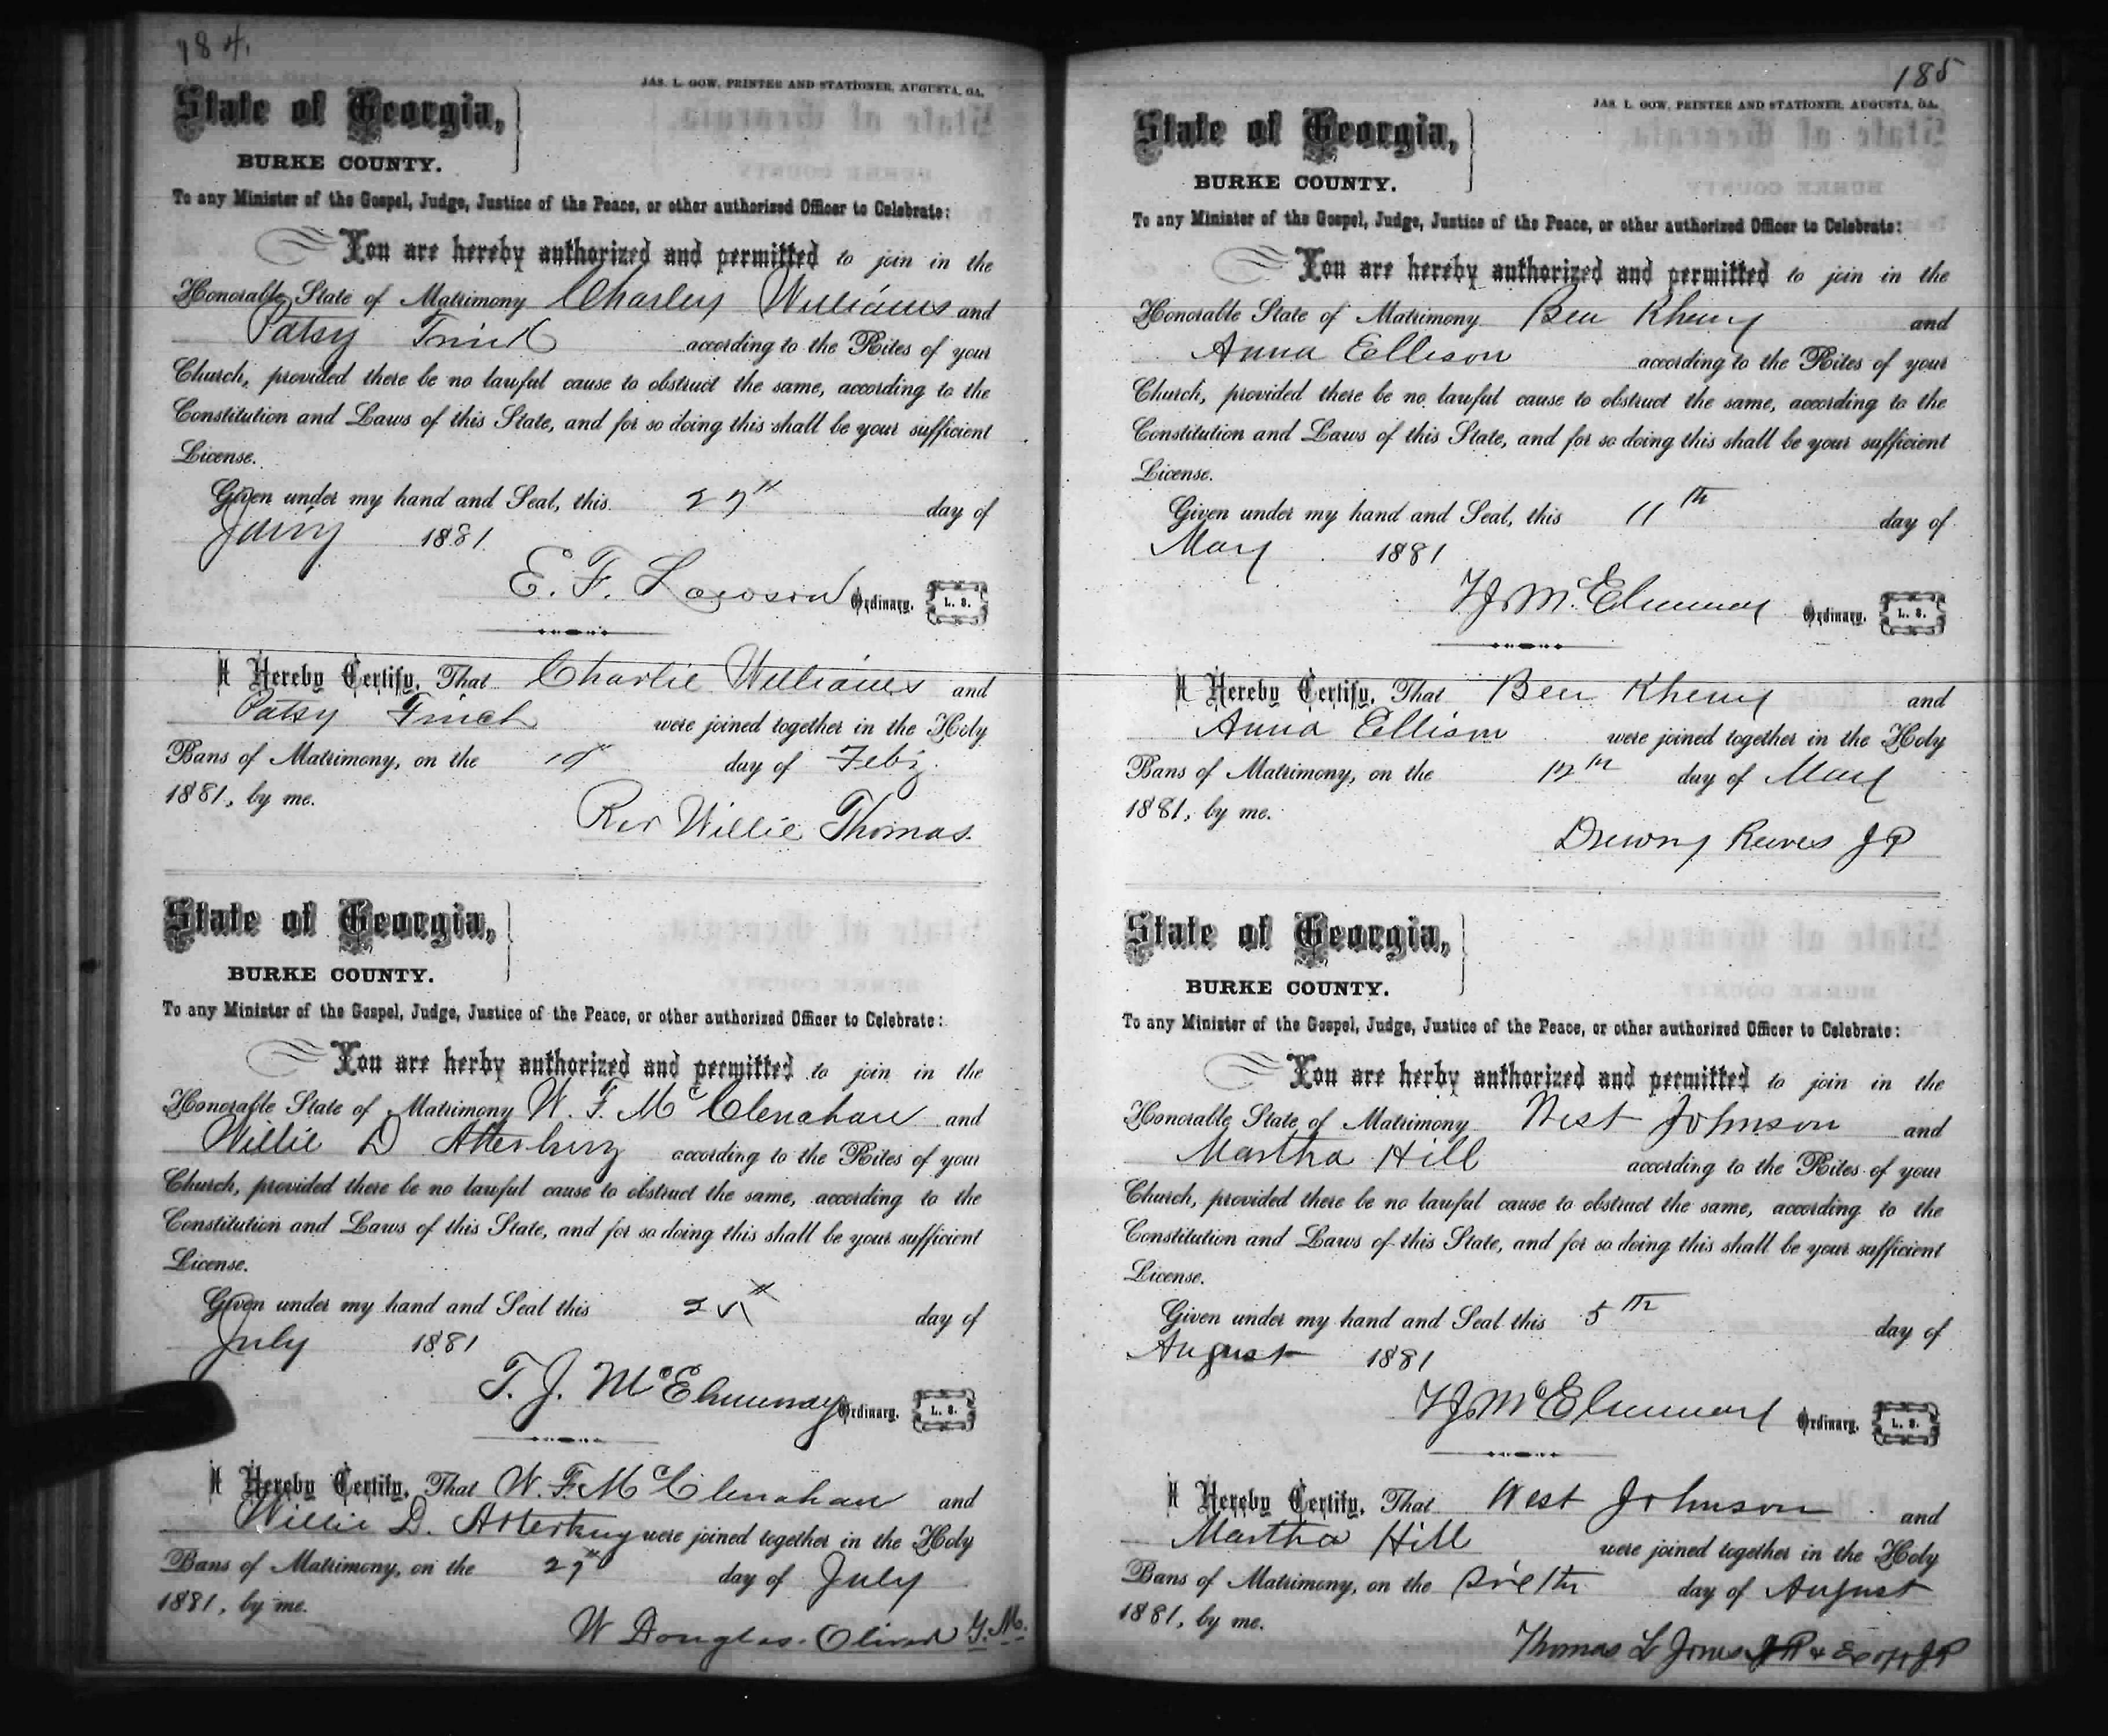 184.
JAS. L. GOW, PRINTER AND STATIONER, AUGUSTA, GA.
State of Georgia,
BURKE COUNTY.
To any Minister of the Gospel, Judge, Justice of the Peace, or other authorized Officer to Celebrate:
You are hereby authorized and permitted to join in the
Honorable State of Matrimony Charley Williams and
Patsy Finch according to the Rites of your
Church, provided there be no lawful cause to obstruct the same, according to the
Constitution and Laws of this State, and for so doing this shall be your sufficient
License.
Given under my hand and Seal, this 27th day of
Jany 1881.
E. F. Lawson Ordinary. L. S.
I Hereby Certify, That Charlie Williams and
Patsy Finch were joined together in the Holy
Bans of Matrimony, on the day of Feby.
1881, by me.
Rev Willie Thomas.
State of Georgia,
BURKE COUNTY.
To any Minister of the Gospel, Judge, Justice of the Peace, or other authorized Officer to Celebrate:
You are herby authorized and permitted to join in the
Honorable State of Matrimony W. F. McClenahan and
Willie D Atterbury according to the Rites of your
Church, provided there be no lawful cause to obstruct the same, according to the
Constitution and Laws of this State, and for so doing this shall be your sufficient
License.
Given under my hand and Seal this 25th day of
July 1881
T. J. McElmurray Ordinary. L. S.
I Hereby Certify, That W. F. McClenahan and
Willie D. Atterbury were joined together in the Holy
Bans of Matrimony, on the 27th day of July
1881, by me.
W Douglas. Oliver G.M.
185
JAS. L. GOW, PRINTER AND STATIONER, AUGUSTA, GA.
State of Georgia,
BURKE COUNTY.
To any Minister of the Gospel, Judge, Justice of the Peace, or other authorized Officer to Celebrate:
You are hereby authorized and permitted to join in the
Honorable State of Matrimony Ben Kheny and
Anna Ellison according to the Rites of your
Church, provided there be no lawful cause to obstruct the same, according to the
Constitution and Laws of this State, and for so doing this shall be your sufficient
License.
Given under my hand and Seal, this 11th day of
May 1881
TJ. McElmurray Ordinary. L. S.
I Hereby Certify, That Ben Kheny and
Anna Ellison were joined together in the Holy
Bans of Matrimony, on the 12th day of May
1881, by me.
Drewry Reeves JP
State of Georgia,
BURKE COUNTY.
To any Minister of the Gospel, Judge, Justice of the Peace, or other authorized Officer to Celebrate:
You are herby authorized and permitted to join in the
Honorable State of Matrimony West Johnson and
Martha Hill according to the Rites of your
Church, provided there be no lawful cause to obstruct the same, according to the
Constitution and Laws of this State, and for so doing this shall be your sufficient
License.
Given under my hand and Seal this 5th day of
August 1881
TJ. McElmurray Ordinary. L. S.
I Hereby Certify, That West Johnson and
Martha Hill were joined together in the Holy
Bans of Matrimony, on the day of August
1881, by me.
Thomas L Jones JP